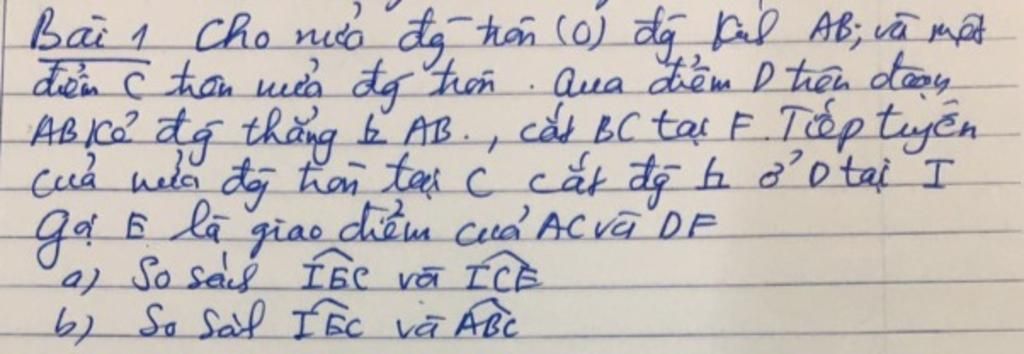 Bài 1 Cho nửa đg tròn (O) đg kính AB; và một
điểm C trên nửa đg tròn. Qua điểm D trên đoạn
AB kẻ đg thẳng ⊥ AB., cắt BC tại F. Tiếp tuyến
của nửa đg tròn tại C cắt đg ⊥ ở D tại I
Gọi E là giao điểm của AC và DF
a) So sánh \widehat{IEC} và \widehat{ICE}
b) So sánh \widehat{IEC} và \widehat{ABC}